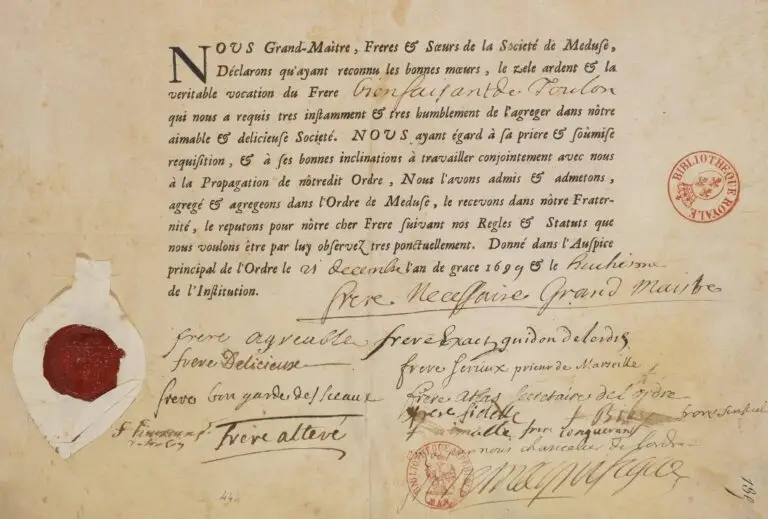 NOUS Grand-Maitre, Freres & Sœurs de la Societé de Meduse,
Déclarons qu'ayant reconnu les bonnes mœurs, le zele ardent & la
veritable vocation du Frere bienfaisant de Toulon
qui nous a requis tres instamment & tres humblement de l'agreger dans nôtre
aimable & delicieuse Societé. NOUS ayant égard à sa priere & soûmise
requisition, & à ses bonnes inclinations à travailler conjointement avec nous
à la Propagation de nôtredit Ordre, Nous l'avons admis & admetons,
agregé & agregeons dans l'Ordre de Meduse, le recevons dans nôtre Frater-
nité, le reputons pour nôtre cher Frere suivant nos Regles & Statuts que
nous voulons être par luy observez tres ponctuellement. Donné dans l'Auspice
principal de l'Ordre le 21 decembre l'an de grace 1699 & le huchiesme
de l'Institution.
frere Necessaire Grand Maistre
frere agreable frere Exact guidon de lordre
frere Delicieux
frere serieux prieur de Marseille
frere bon garde des sceaux
frere atlas secretaire del ordre
frere fidelle
frere conquerant
frère altéré
chancelier de lordre
BIBLIOTHEQUE ROYALE